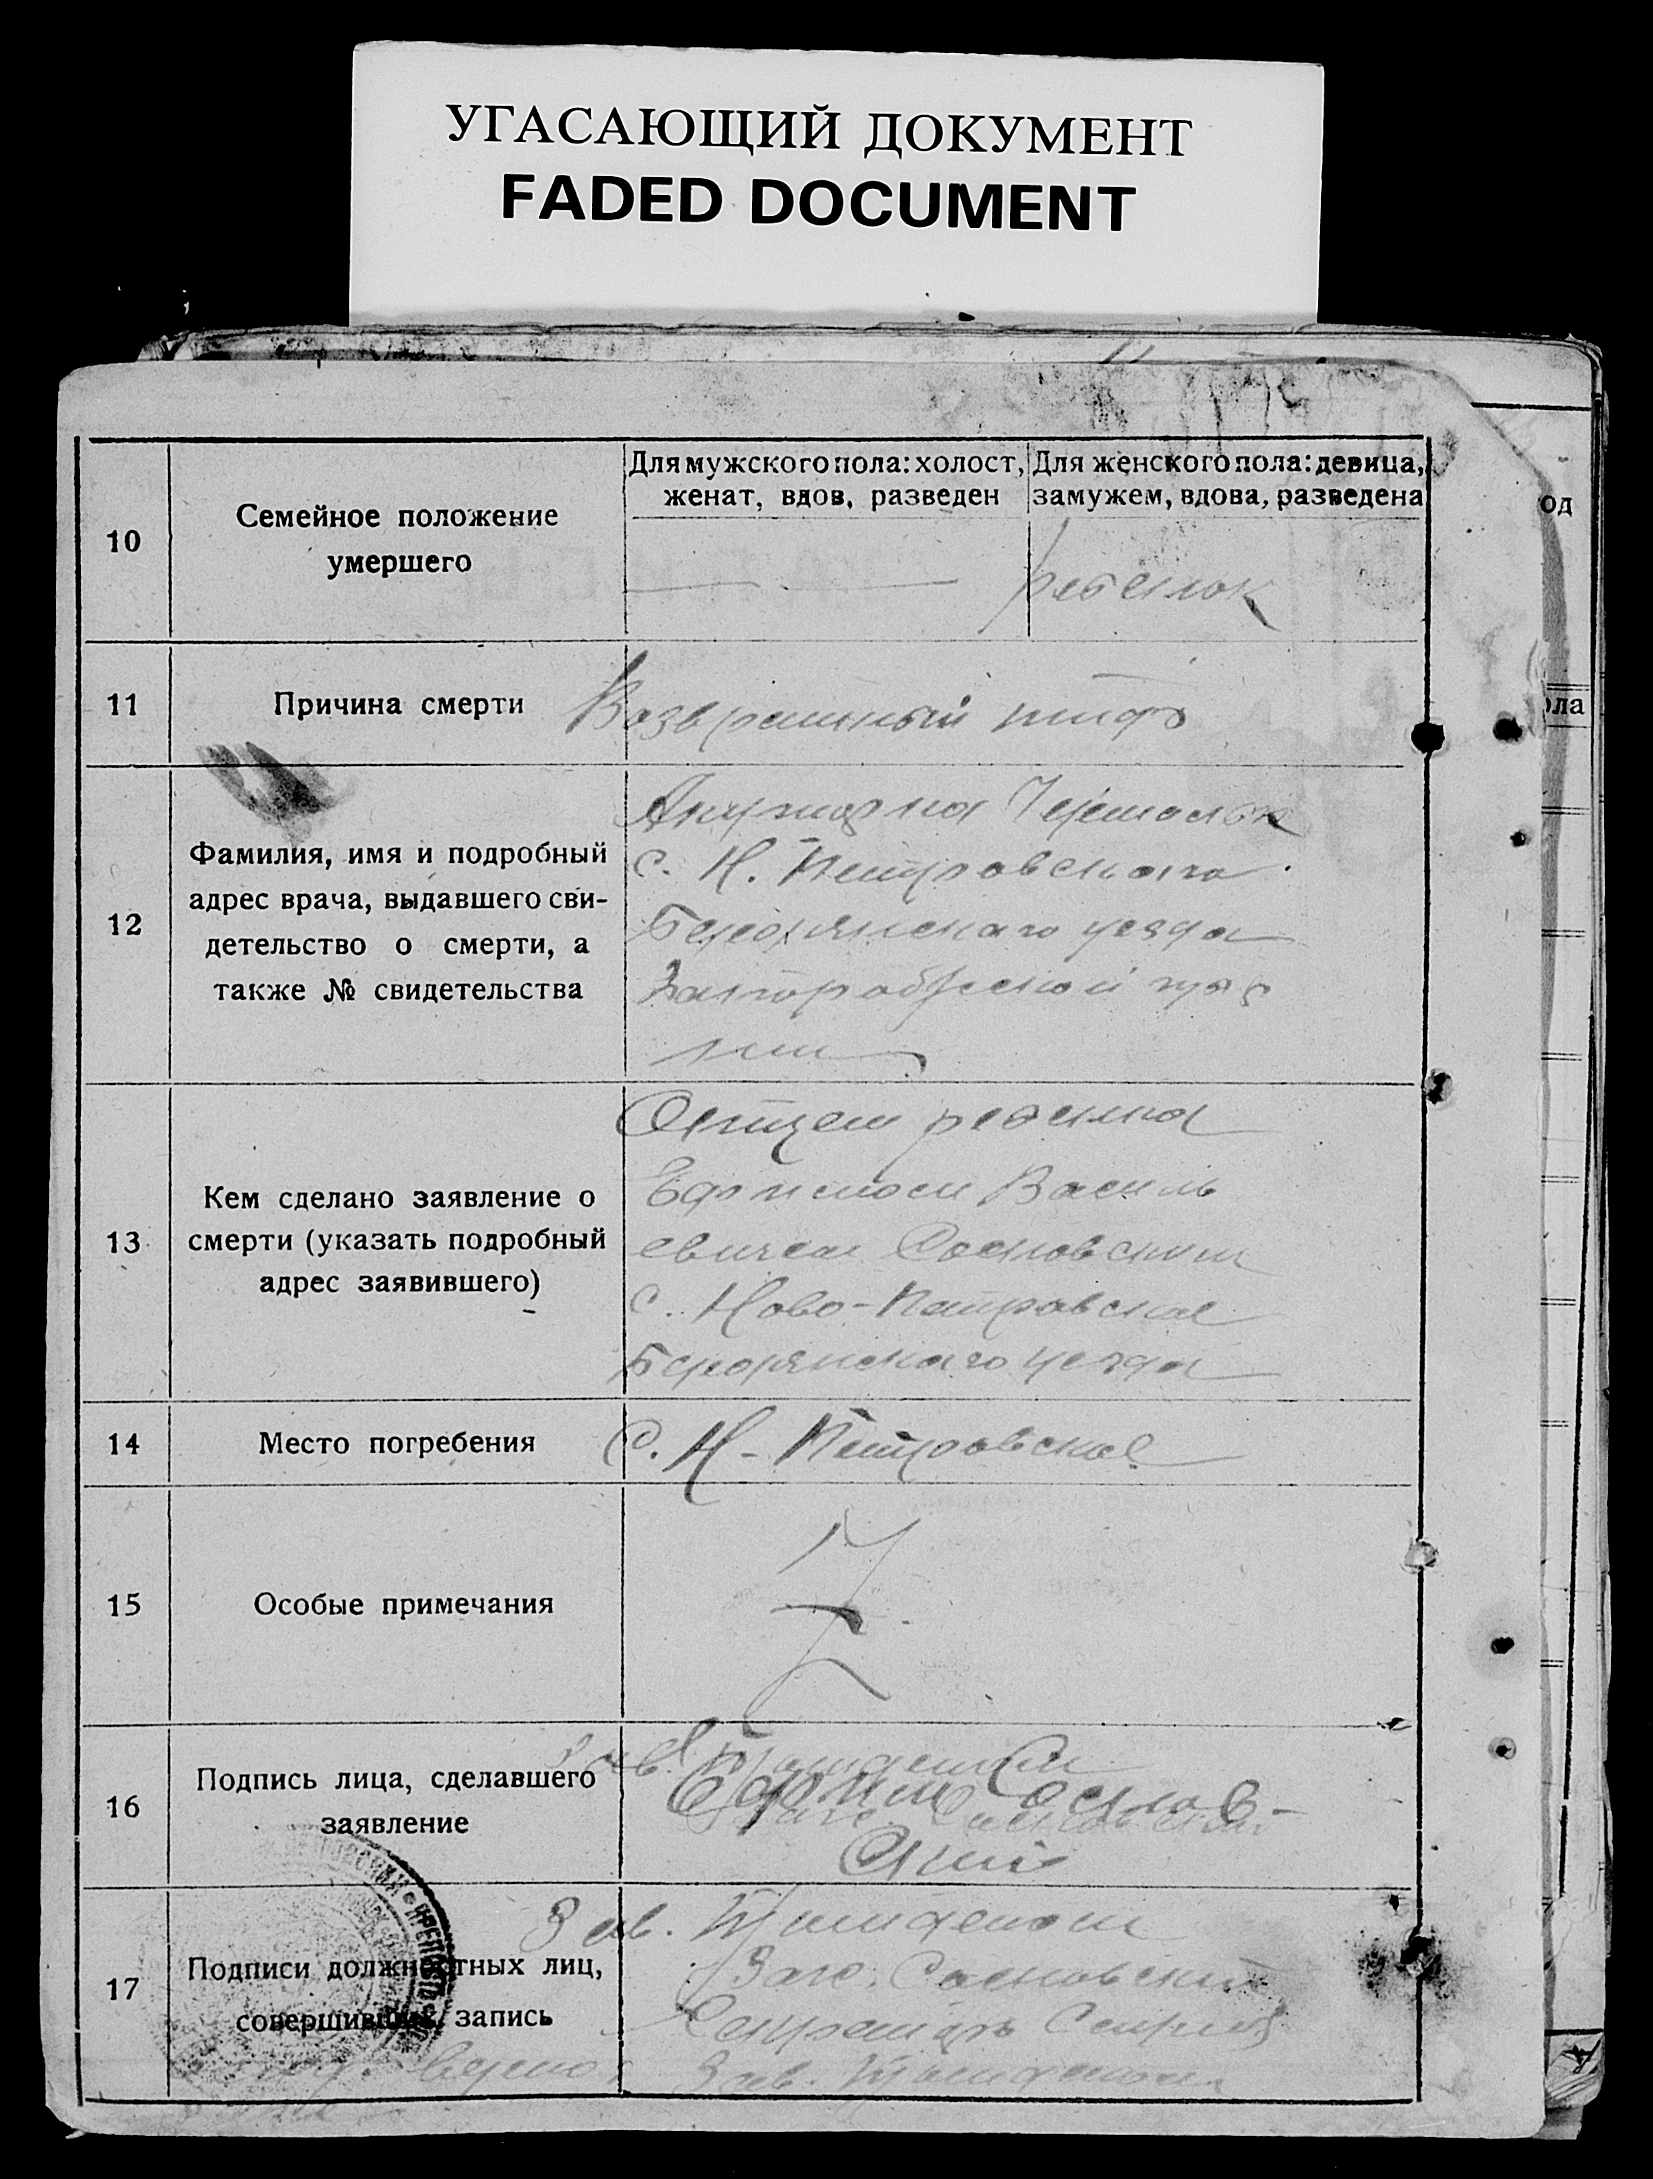 УГАСАЮЩИЙ ДОКУМЕНТ
FADED DOCUMENT
10
Семейное положение
умершего
Для мужского пола: холост,
женат, вдов, разведен
Для женского пола: девица,
замужем, вдова, разведена
ребенок
11
Причина смерти
Возвратный тифъ
12
Фамилия, имя и подробный
адрес врача, выдавшего сви-
детельство о смерти, а
также № свидетельства
Акушорка
с. Н. Петровского
Бердянскаго уезда
13
Кем сделано заявление о
смерти (указать подробный
адрес заявившего)
Отцем ребенка
Ефимом Василь
евичем Сосновским
с. Ново-Петровское
Бердянскаго уезда
14
Место погребения
С. Н-Петровское
15
Особые примечания
16
Подпись лица, сделавшего
заявление
Ефим Соснов-
ский
17
Подписи должностных лиц,
совершивших запись
Зав.
Загс. Сосновский
Секретарь
верно
Зав.
од
ола